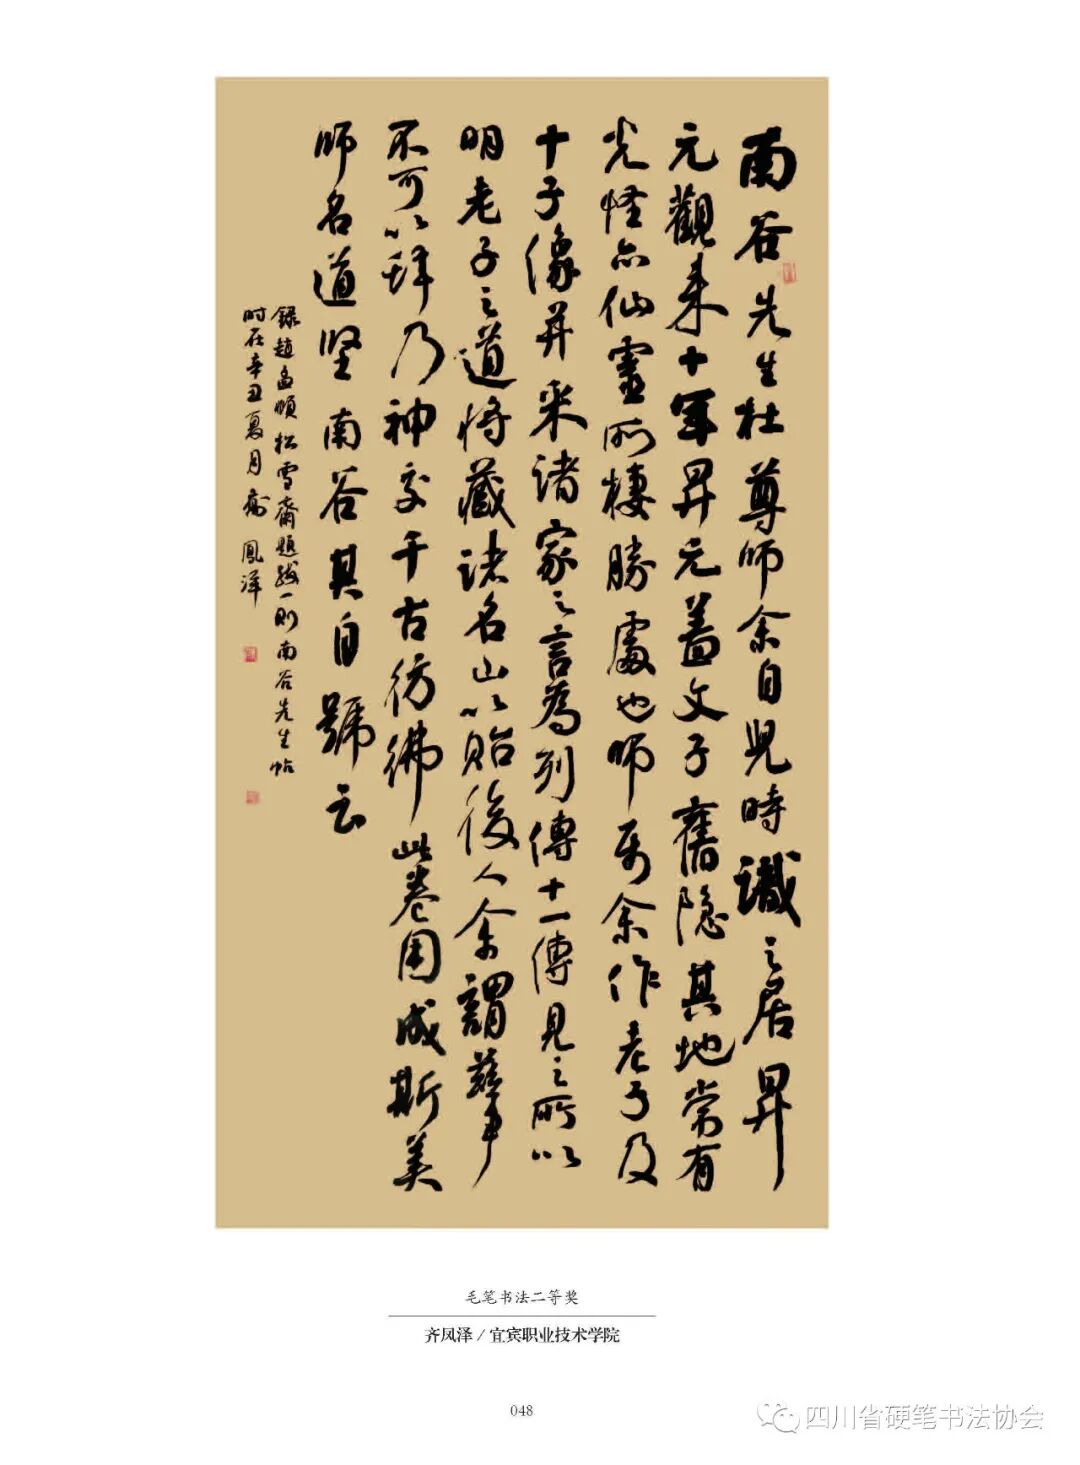 南谷先生杜尊师余自儿時識之居昇
元觀来十年昇元盖文子舊隐其地常有
光怪亦仙靈所棲勝處也师属余作老子及
十子像并采诸家之言為列傳十一傳見之所以
明老子之道将藏诸名山以贻後人余謂兹事
不可以辞乃神交千古彷彿此卷用成斯美
师名道坚南谷其自號云
録趙孟頫松雪齋題跋一则南谷先生帖
时在辛丑夏月齊鳳泽
毛笔书法二等奖
齐凤泽 / 宜宾职业技术学院
048
四川省硬笔书法协会